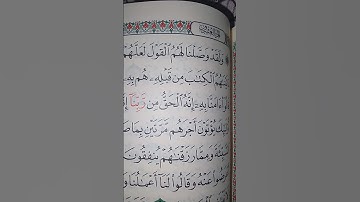 وَلَقَدْ وَصَّلْنَا لَهُمُ الْقَوْلَ لَعَلَّهُمْ
الْكِتَٰبَ مِن قَبْلِهِۦ هُم بِهِۦ
ءَامَنَّا بِهِۦٓ إِنَّهُ الْحَقُّ مِن رَّبِّنَآ
يُؤْتَوْنَ أَجْرَهُم مَّرَّتَيْنِ بِمَا
وَمِمَّا رَزَقْنَٰهُمْ يُنفِقُونَ
عَنْهُ وَقَالُوا۟ لَنَآ أَعْمَٰلُنَا